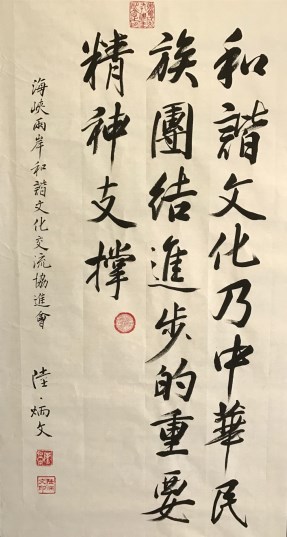 和諧文化乃中華民
族團結進步的重要
精神支撐
海峽兩岸和諧文化交流協進會
陸·炳文